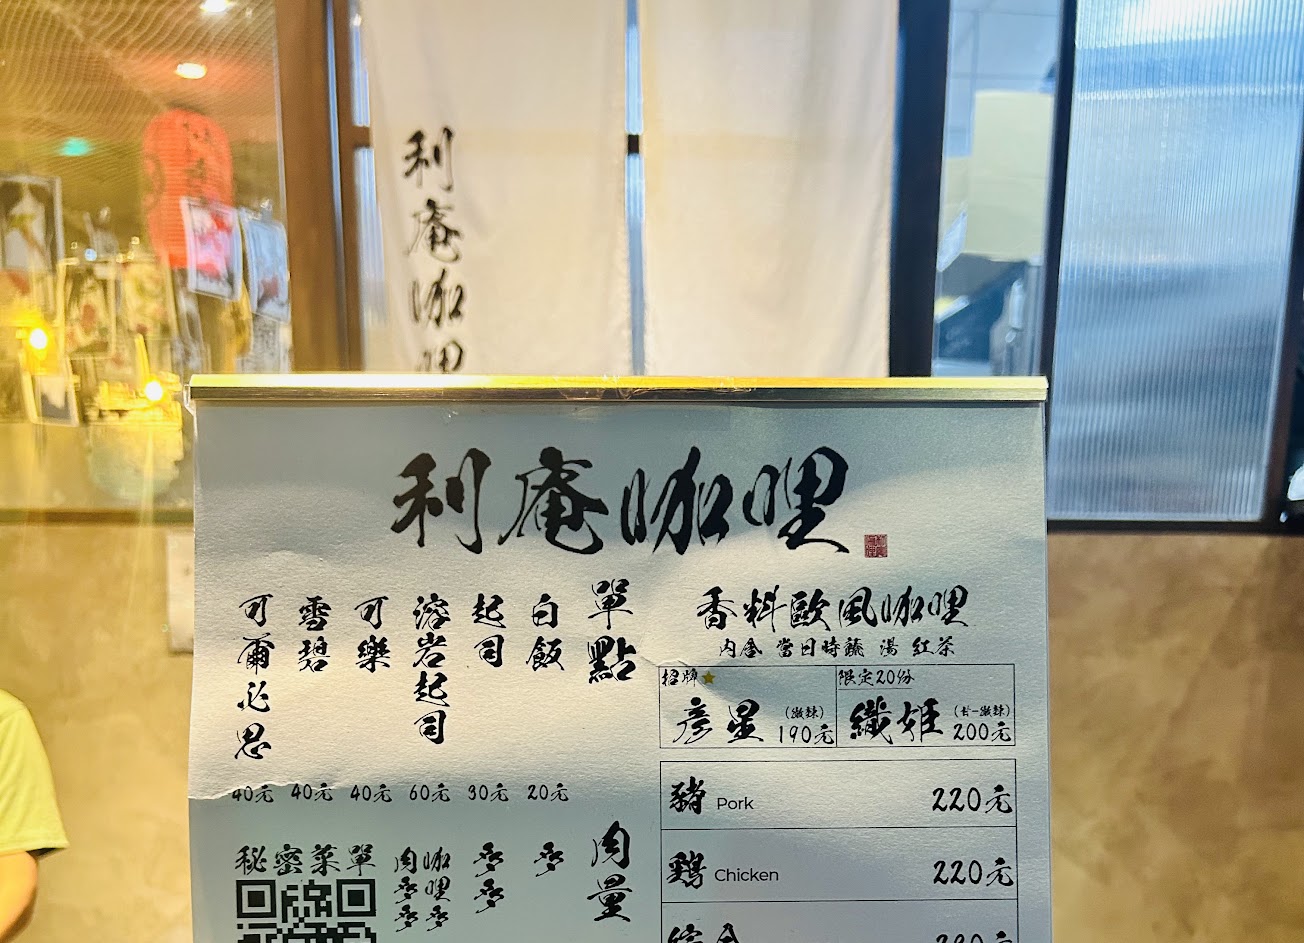 利庵咖哩
利庵咖哩
香料歐風咖哩
內含 當日時蔬 湯 紅茶
招牌
彥星 (微辣) 190元
限定20份
織姬 (甘-微辣) 200元
豬 Pork 220元
鷄 Chicken 220元
綜合
單點
白飯 20元
起司 30元
溶岩起司 60元
可樂 40元
雪碧 40元
可爾必思 40元
肉量
多
多多
咖哩多多
肉多多
秘密菜單